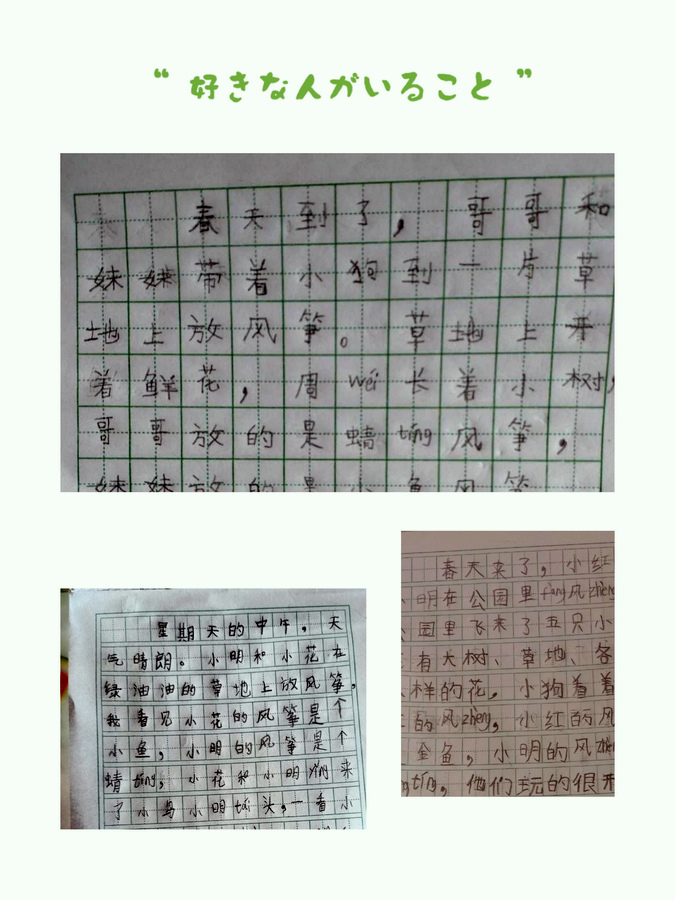 “ 好きな人がいること ”
春天到了，哥哥和
妹妹带着小狗到一片草
地上放风筝。草地上开
着鲜花，周wéi长着小树，
哥哥放的是蜻tíng风筝，
妹妹放的是小鱼风筝
星期天的中午，天
气晴朗。小明和小花在
绿油油的草地上放风筝，
我看见小花的风筝是个
小鱼，小明的风筝是个
蜻tíng，小花和小明yǐng来
了小鸟小明tái头，一看小
春天来了，小红
明在公园里fàng风zhēng
园里飞来了五只小
有大树、草地、各
样的花，小狗看着
的风zhēng，小红的风
金鱼，小明的风zhē
tíng，他们玩的很开